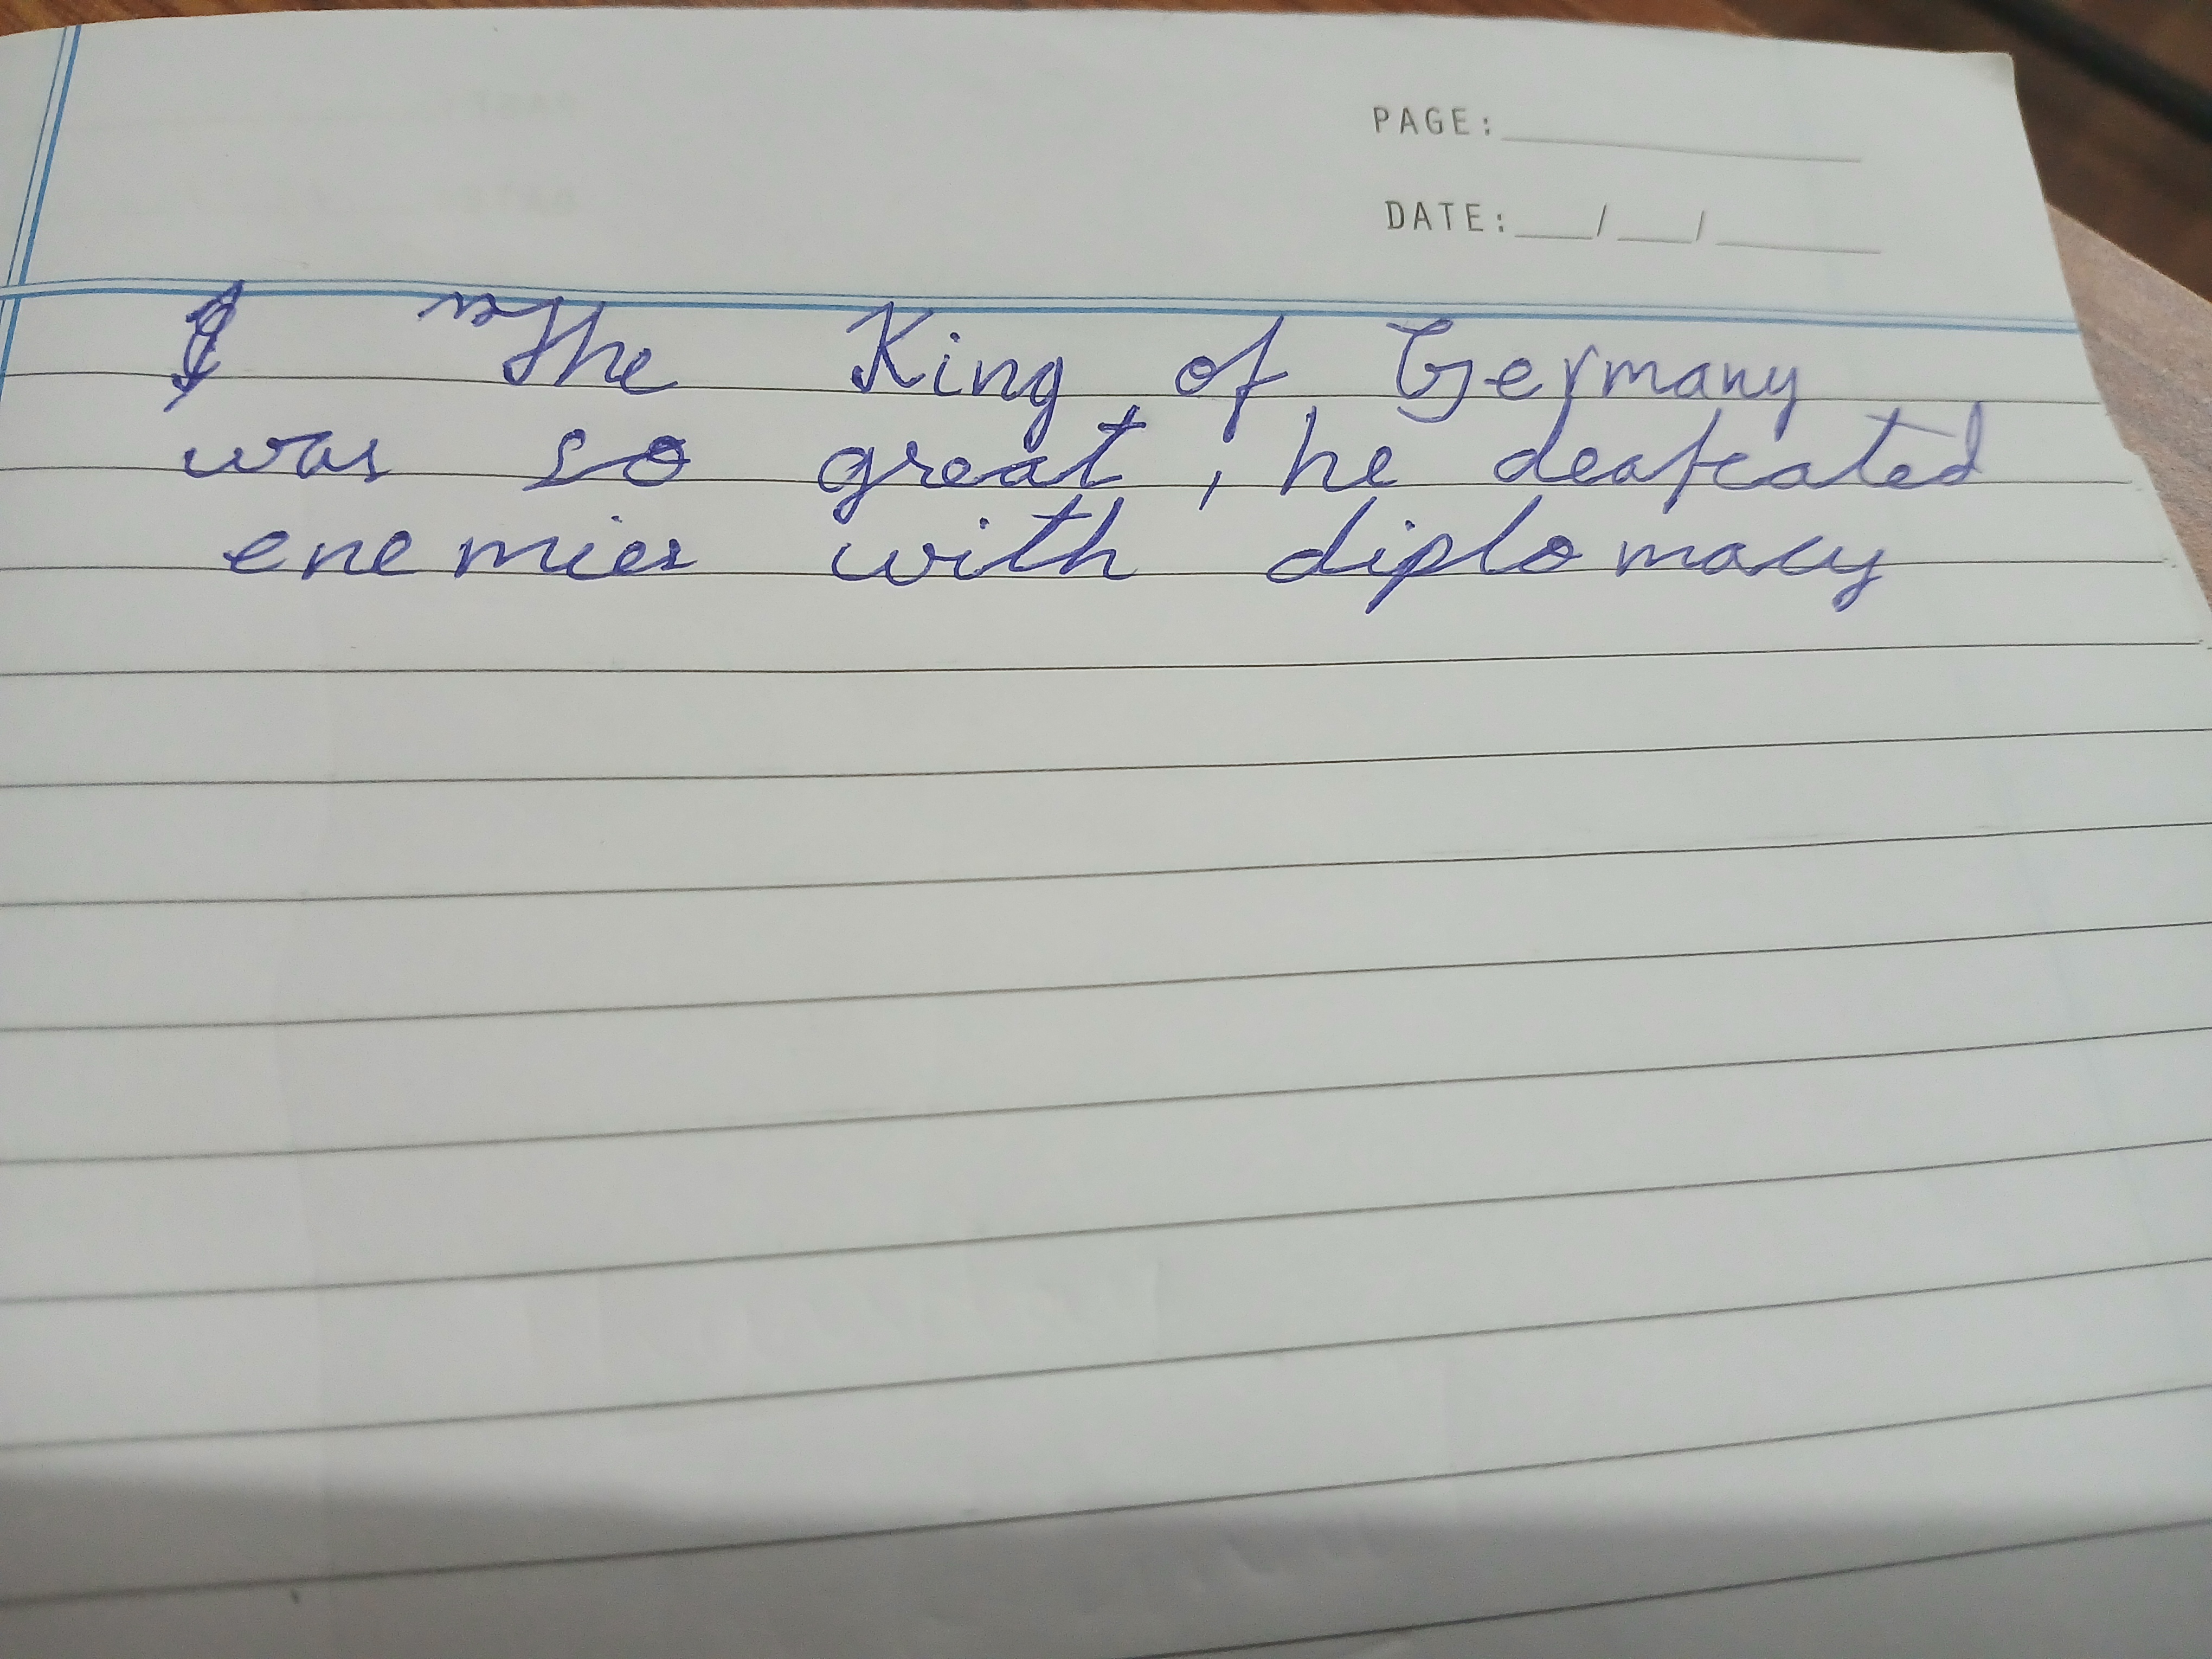 PAGE:
DATE: / /
The King of Germany
was so great, he deafeated
enemies with diplomacy